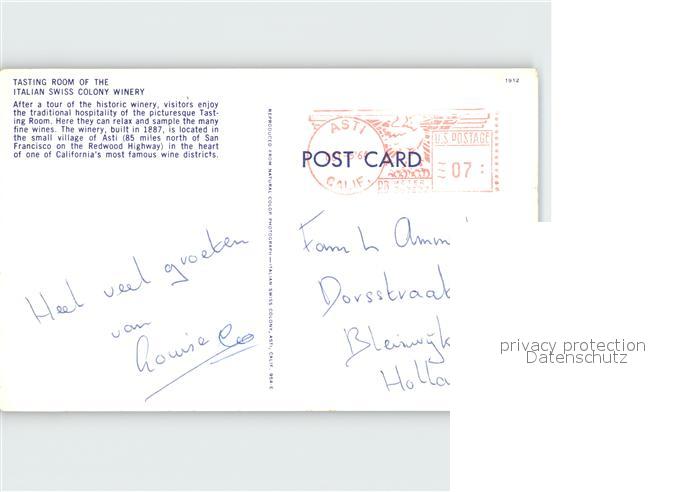 TASTING ROOM OF THE
ITALIAN SWISS COLONY WINERY
After a tour of the historic winery, visitors enjoy
the traditional hospitality of the picturesque Tast-
ing Room. Here they can relax and sample the many
fine wines. The winery, built in 1887, is located in
the small village of Asti (85 miles north of San
Francisco on the Redwood Highway) in the heart
of one of California's most famous wine districts.
Heel veel groeten
van
Louise
REPRODUCED FROM NATURAL COLOR PHOTOGRAPH—ITALIAN SWISS COLONY, ASTI, CALIF.
1912
ASTI
CALIF.
U.S. POSTAGE
07
POST CARD
Fam
Dorsstraat
Bleiswijk
Holla
privacy protection
Datenschutz